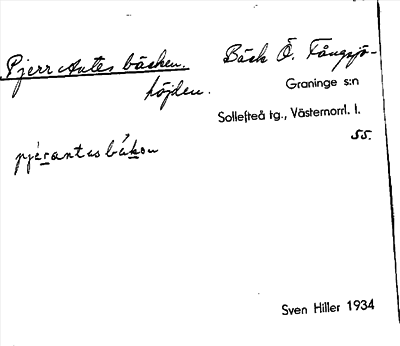 Pjerr Antes bäcken. Bäck Ö. Fångsjö-
höjden.
Graninge s:n
Sollefteå tg., Västernorrl. l.
55.
pjérantesbåkon
Sven Hiller 1934